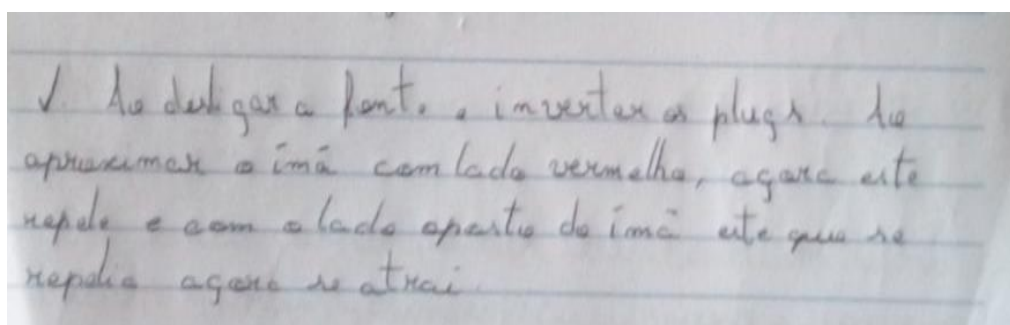 √. Ao desligar a fonte, e inverter os plugs. Ao
aproximar o imã com lado vermelho, agora este
repele e com o lado oposto do ímã este que se
repelia agora se atrai.